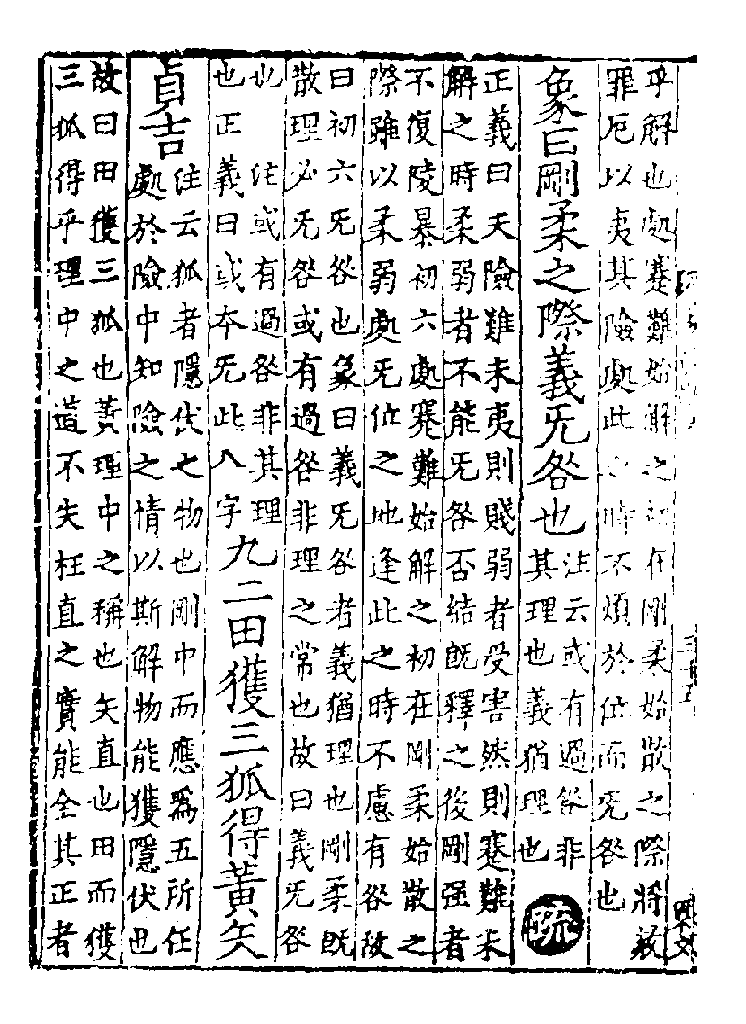 乎解也處蹇難始解之初在剛柔始散之際將赦
罪厄以夷其險處此之時不煩於位而无咎也
象曰剛柔之際義无咎也
注云或有過咎非
其理也義猶理也
疏
正義曰天險難未夷則賤弱者受害然則蹇難未
解之時柔弱者不能无咎否結既釋之後剛强者
不復陵暴初六處蹇難始解之初在剛柔始散之
際雖以柔弱處无位之地逢此之時不慮有咎故
曰初六无咎也象曰義无咎者義猶理也剛柔既
散理必无咎或有過咎非理之常也故曰義无咎
也 注或有過咎非其理
也正義曰或本无此八字
九二田獲三狐得黃矢
貞吉
注云狐者隱伏之物也剛中而應爲五所任
處於險中知險之情以斯解物能獲隱伏也
故曰田獲三狐也黃理中之稱也矢直也田而獲
三狐得乎理中之道不失枉直之實能全其正者